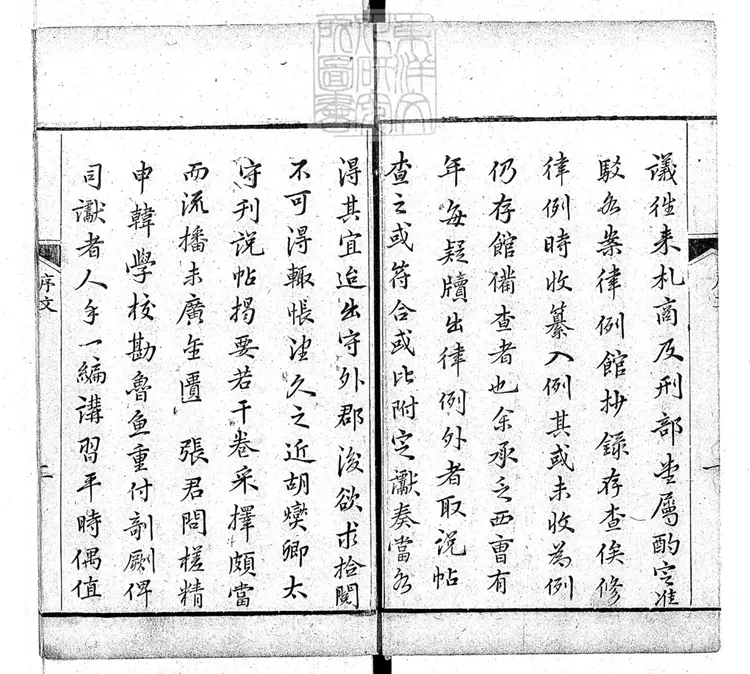 議往来札商及刑部堂屬酌定准
駁各案律例館抄錄存查俟修
律例時收纂入例其或未收為例
仍存館備查者也余承乏西曺有
年每疑牘出律例外者取説帖
查之或符合或比附定讞奏當各
得其宜迨出守外郡後欲求撿閱
不可得輒悵泩久之近胡燮卿太
守刊説帖揭要若干卷采擇頗當
而流播未廣金匱張君問槎精
申韓學校勘魯魚重付剞劂俾
司讞者人手一編講習平時偶值
序文
二
東洋文
化研究
所圖書